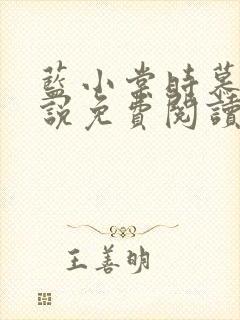 藍小棠時慕
說免費閱讀
王善明